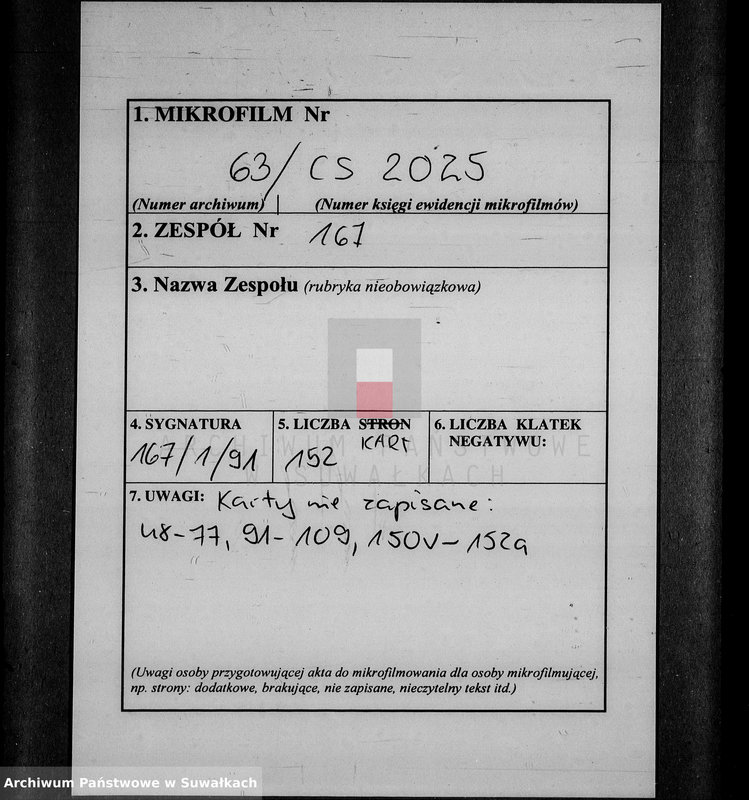 1. MIKROFILM Nr
63/CS 2025
(Numer archiwum) (Numer księgi ewidencji mikrofilmów)
2. ZESPÓŁ Nr 167
3. Nazwa Zespołu (rubryka nieobowiązkowa)
4. SYGNATURA
167/1/91
5. LICZBA STRON
KART
152
6. LICZBA KLATEK
NEGATYWU:
ARCHIWUM PAŃSTWOWE
W SUWAŁKACH
7. UWAGI: Karty nie zapisane:
48-77, 91-109, 150v-152a
(Uwagi osoby przygotowującej akta do mikrofilmowania dla osoby mikrofilmującej,
np. strony: dodatkowe, brakujące, nie zapisane, nieczytelny tekst itd.)
Archiwum Państwowe w Suwałkach